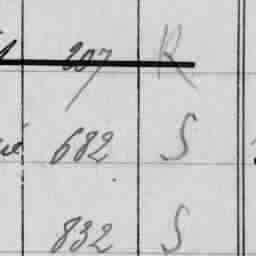 207 R
682 S
832 S